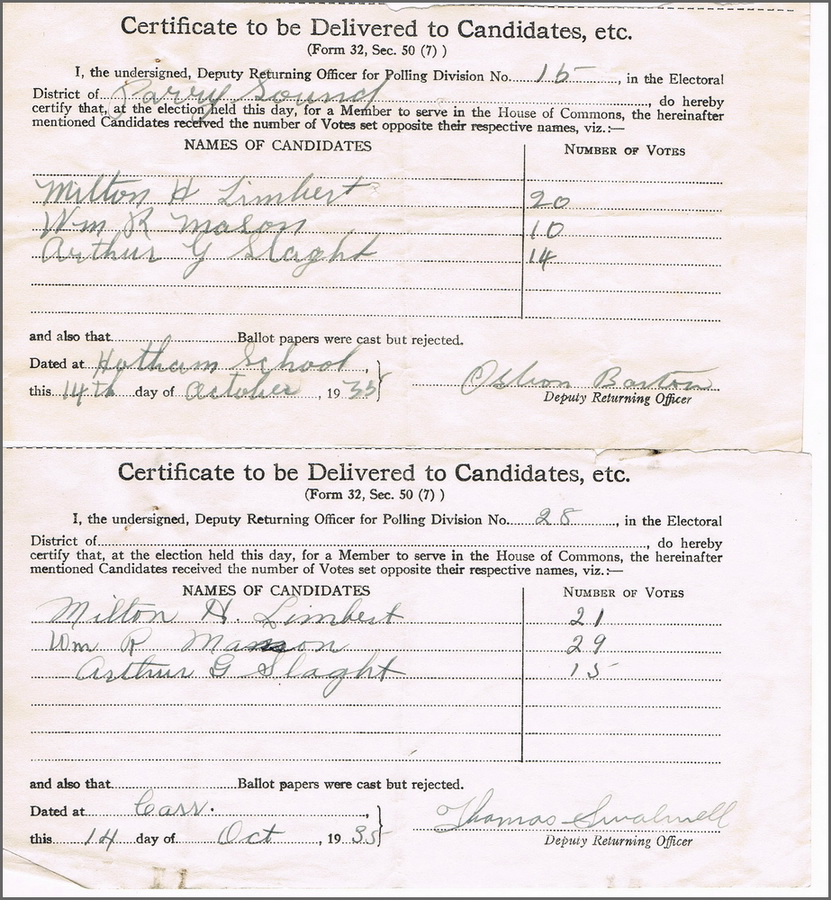 Certificate to be Delivered to Candidates, etc.
(Form 32, Sec. 50 (7) )
I, the undersigned, Deputy Returning Officer for Polling Division No. 15, in the Electoral
District of Parry Sound, do hereby
certify that, at the election held this day, for a Member to serve in the House of Commons, the hereinafter
mentioned Candidates received the number of Votes set opposite their respective names, viz.:—
NAMES OF CANDIDATES NUMBER OF VOTES
Milton H Limbert 20
Wm R Mason 10
Arthur G Slaght 14
and also that Ballot papers were cast but rejected.
Dated at Hotham School,
this 14th day of October, 1935 Barton
Deputy Returning Officer
Certificate to be Delivered to Candidates, etc.
(Form 32, Sec. 50 (7) )
I, the undersigned, Deputy Returning Officer for Polling Division No. 28, in the Electoral
District of , do hereby
certify that, at the election held this day, for a Member to serve in the House of Commons, the hereinafter
mentioned Candidates received the number of Votes set opposite their respective names, viz.:—
NAMES OF CANDIDATES NUMBER OF VOTES
Milton H. Limbert 21
Wm R 29
Arthur G Slaght 15
and also that Ballot papers were cast but rejected.
Dated at Carr.,
this 14 day of Oct, 1935 Thomas Swalwell
Deputy Returning Officer